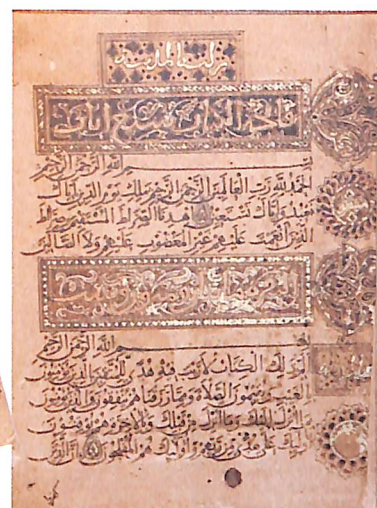 نزلت بالمدينة
فاتحة الكتاب سبع ايات
بسم الله الرحمن الرحيم
الحمد لله رب العالمين الرحمن الرحيم ملك يوم الدين اياك
نعبد واياك نستعين اهدنا الصراط المستقيم صراط
الذين انعمت عليهم غير المغضوب عليهم ولا الضالين
بسم الله الرحمن الرحيم
الم ذلك الكتاب لا ريب فيه هدى للمتقين الذين يؤمنون
بالغيب ويقيمون الصلاة ومما رزقناهم ينفقون والذين يؤمنون
بما انزل اليك وما انزل من قبلك وبالاخرة هم يوقنون
اولئك على هدى من ربهم واولئك هم المفلحون ان الذين